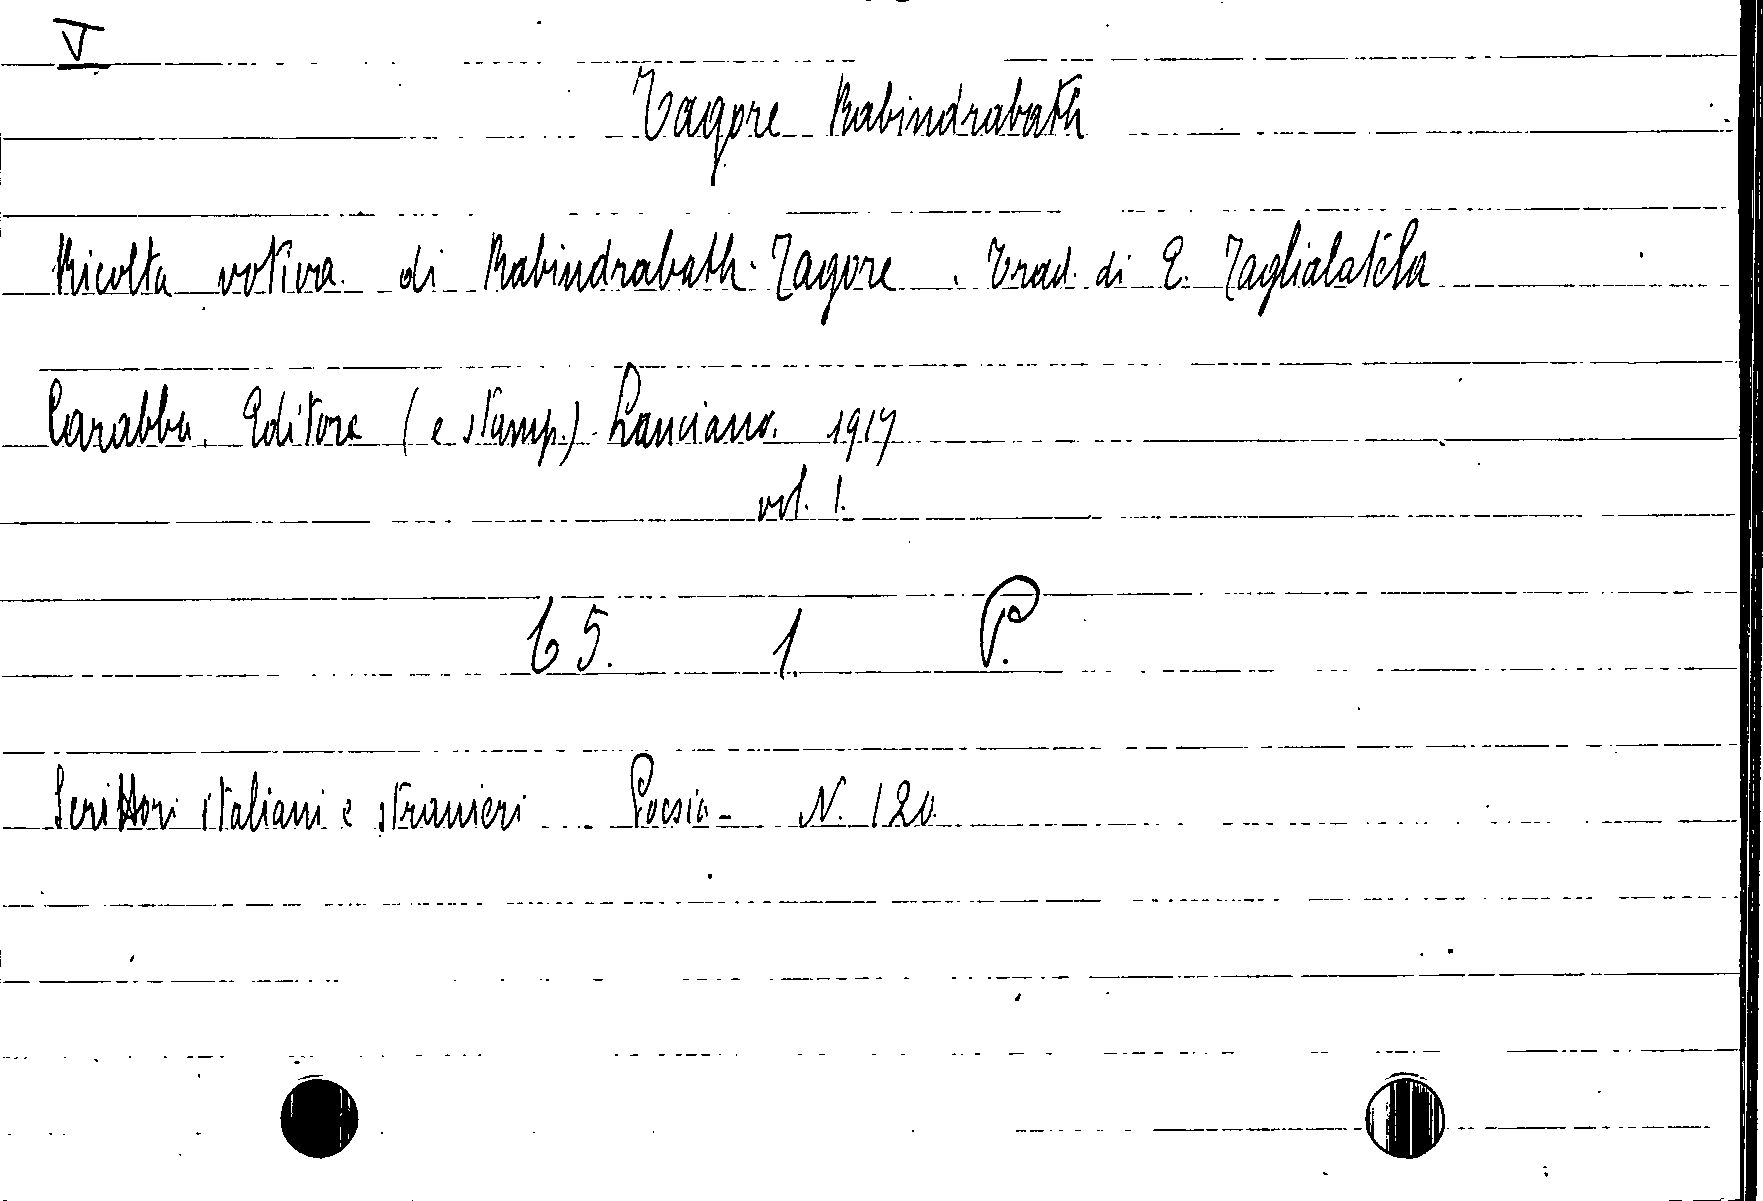 V
Tagore Rabindrabath
Ricolta votiva di Rabindrabath-Tagore. Trad. di E. Taglialatéla
Carabba. Editore (e stamp.) Lanciano. 1917
vol. 1.
65. 1. P.
Scrittori italiani e stranieri - Poesia - N. 120